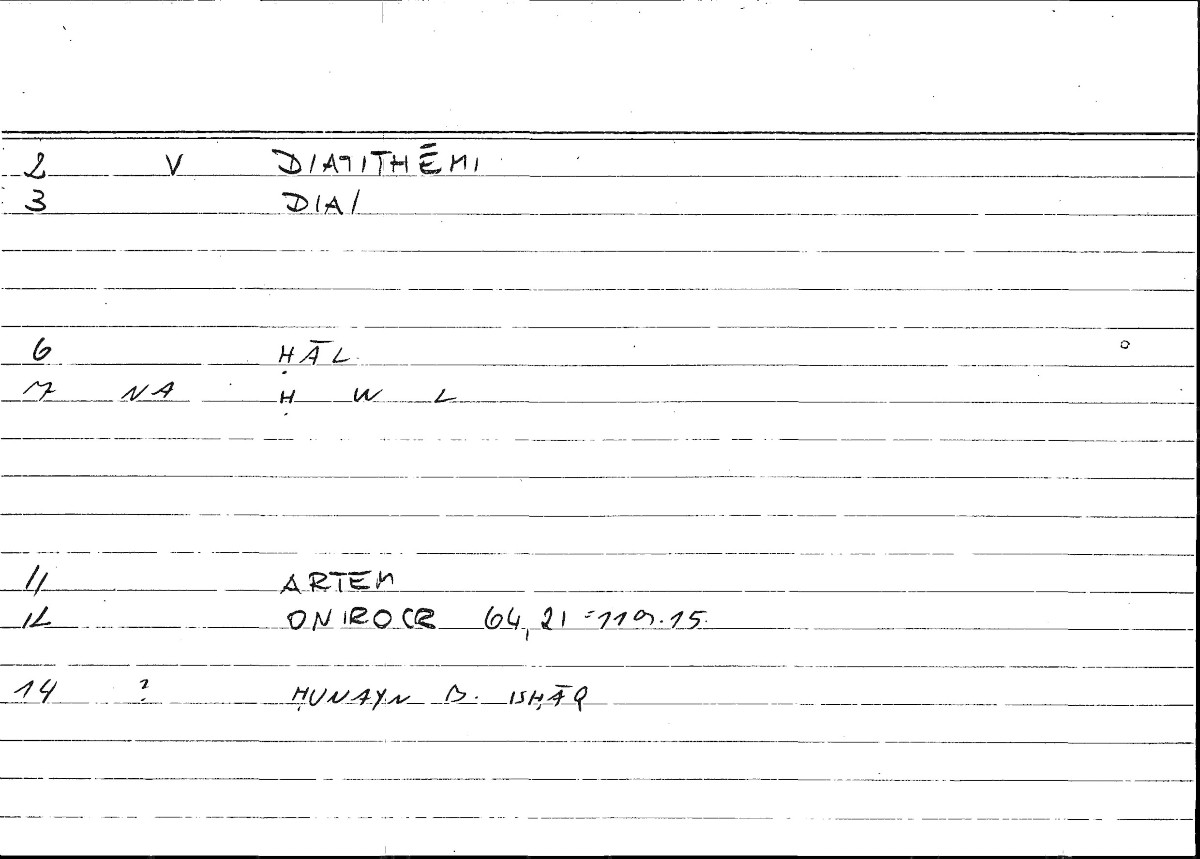 2 V DIATITHĒMI
3 DIA/
6 ḤĀL
7 NA Ḥ W L
11 ARTEM
12 ONIROCR 64,21 = 119.15
14 ? ḤUNAYN B. ISḤĀQ